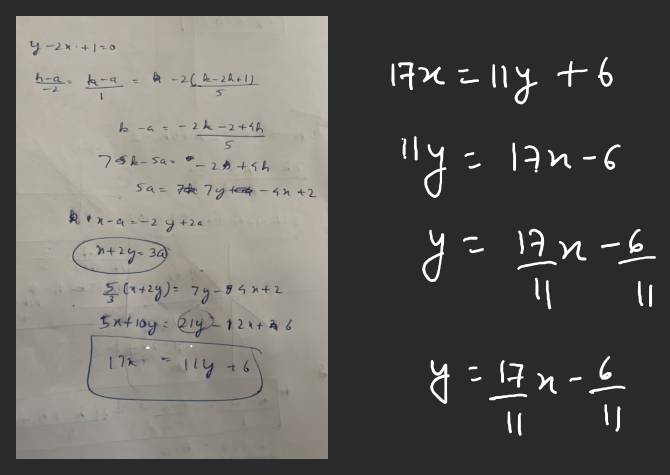 y - 2x + 1 = 0
h-a/-2 = k-a/1 = -2(k-2h+1)/5
k - a = -2k-2+4h/5
5a = 7y - 4x + 2
x - a = -2y + 2a
x + 2y = 3a
5/3 (x+2y) = 7y - 4x + 2
5x + 10y = 21y - 12x + 6
17x = 11y + 6
17x = 11y + 6
11y = 17x - 6
y = 17/11 x - 6/11
y = 17/11 x - 6/11